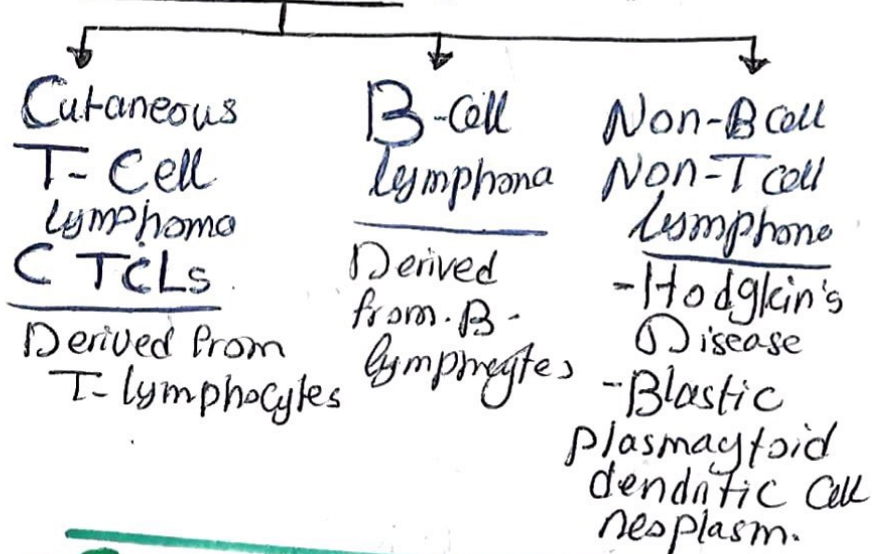 Cutaneous
T-Cell
lymphoma
CTCLs
Derived from
T-lymphocytes
B-Cell
lymphoma
Derived
from B-
lymphocytes
Non-B cell
Non-T cell
lymphoma
-Hodgkin's
Disease
-Blastic
plasmaytoid
dendritic Cell
neoplasm.